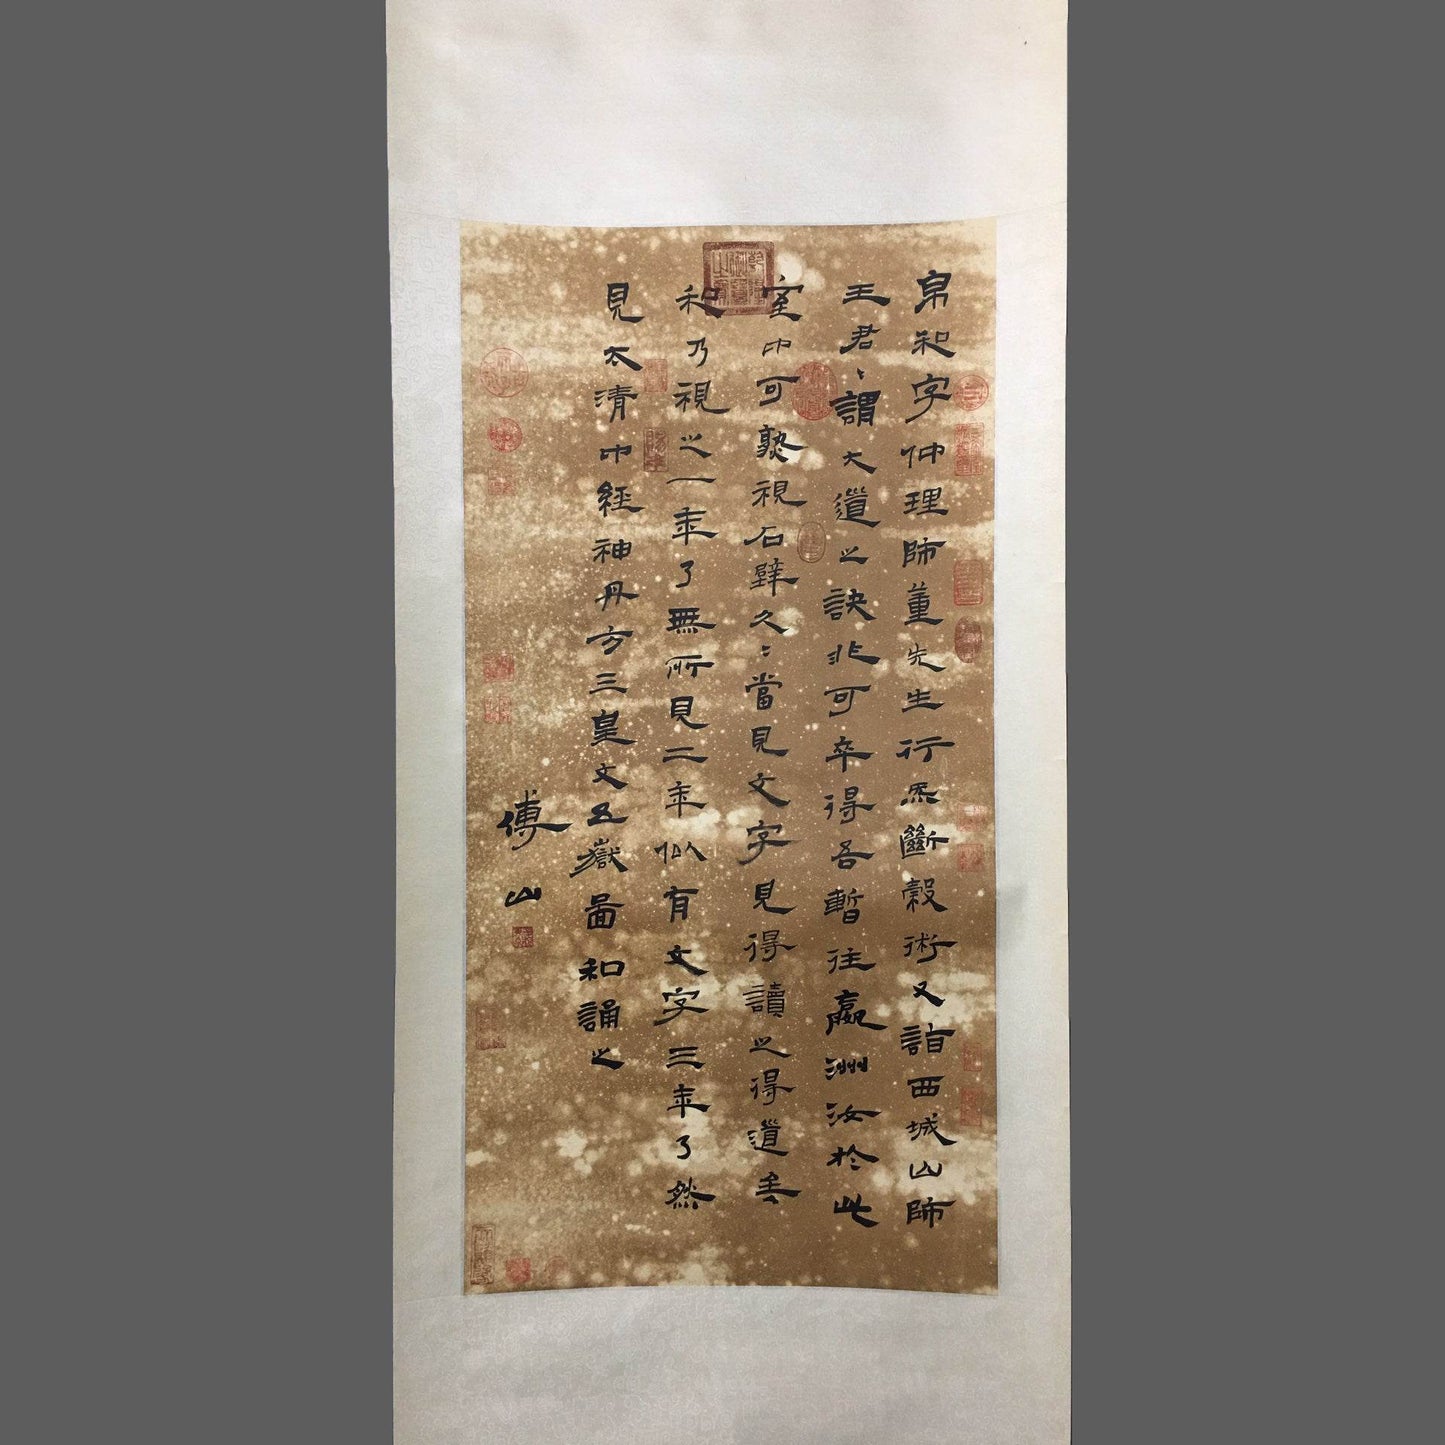 帛和字仲理師董先生行炁斷穀術又詣西城山師
王君〻謂大道之訣非可卒得吾暫往瀛洲汝於此
室中可熟視石壁久〻當見文字見得讀之得道矣
和乃視之一年了無所見二年似有文字三年了然
見太清中經神丹方三皇文五嶽圖和誦之
傅山